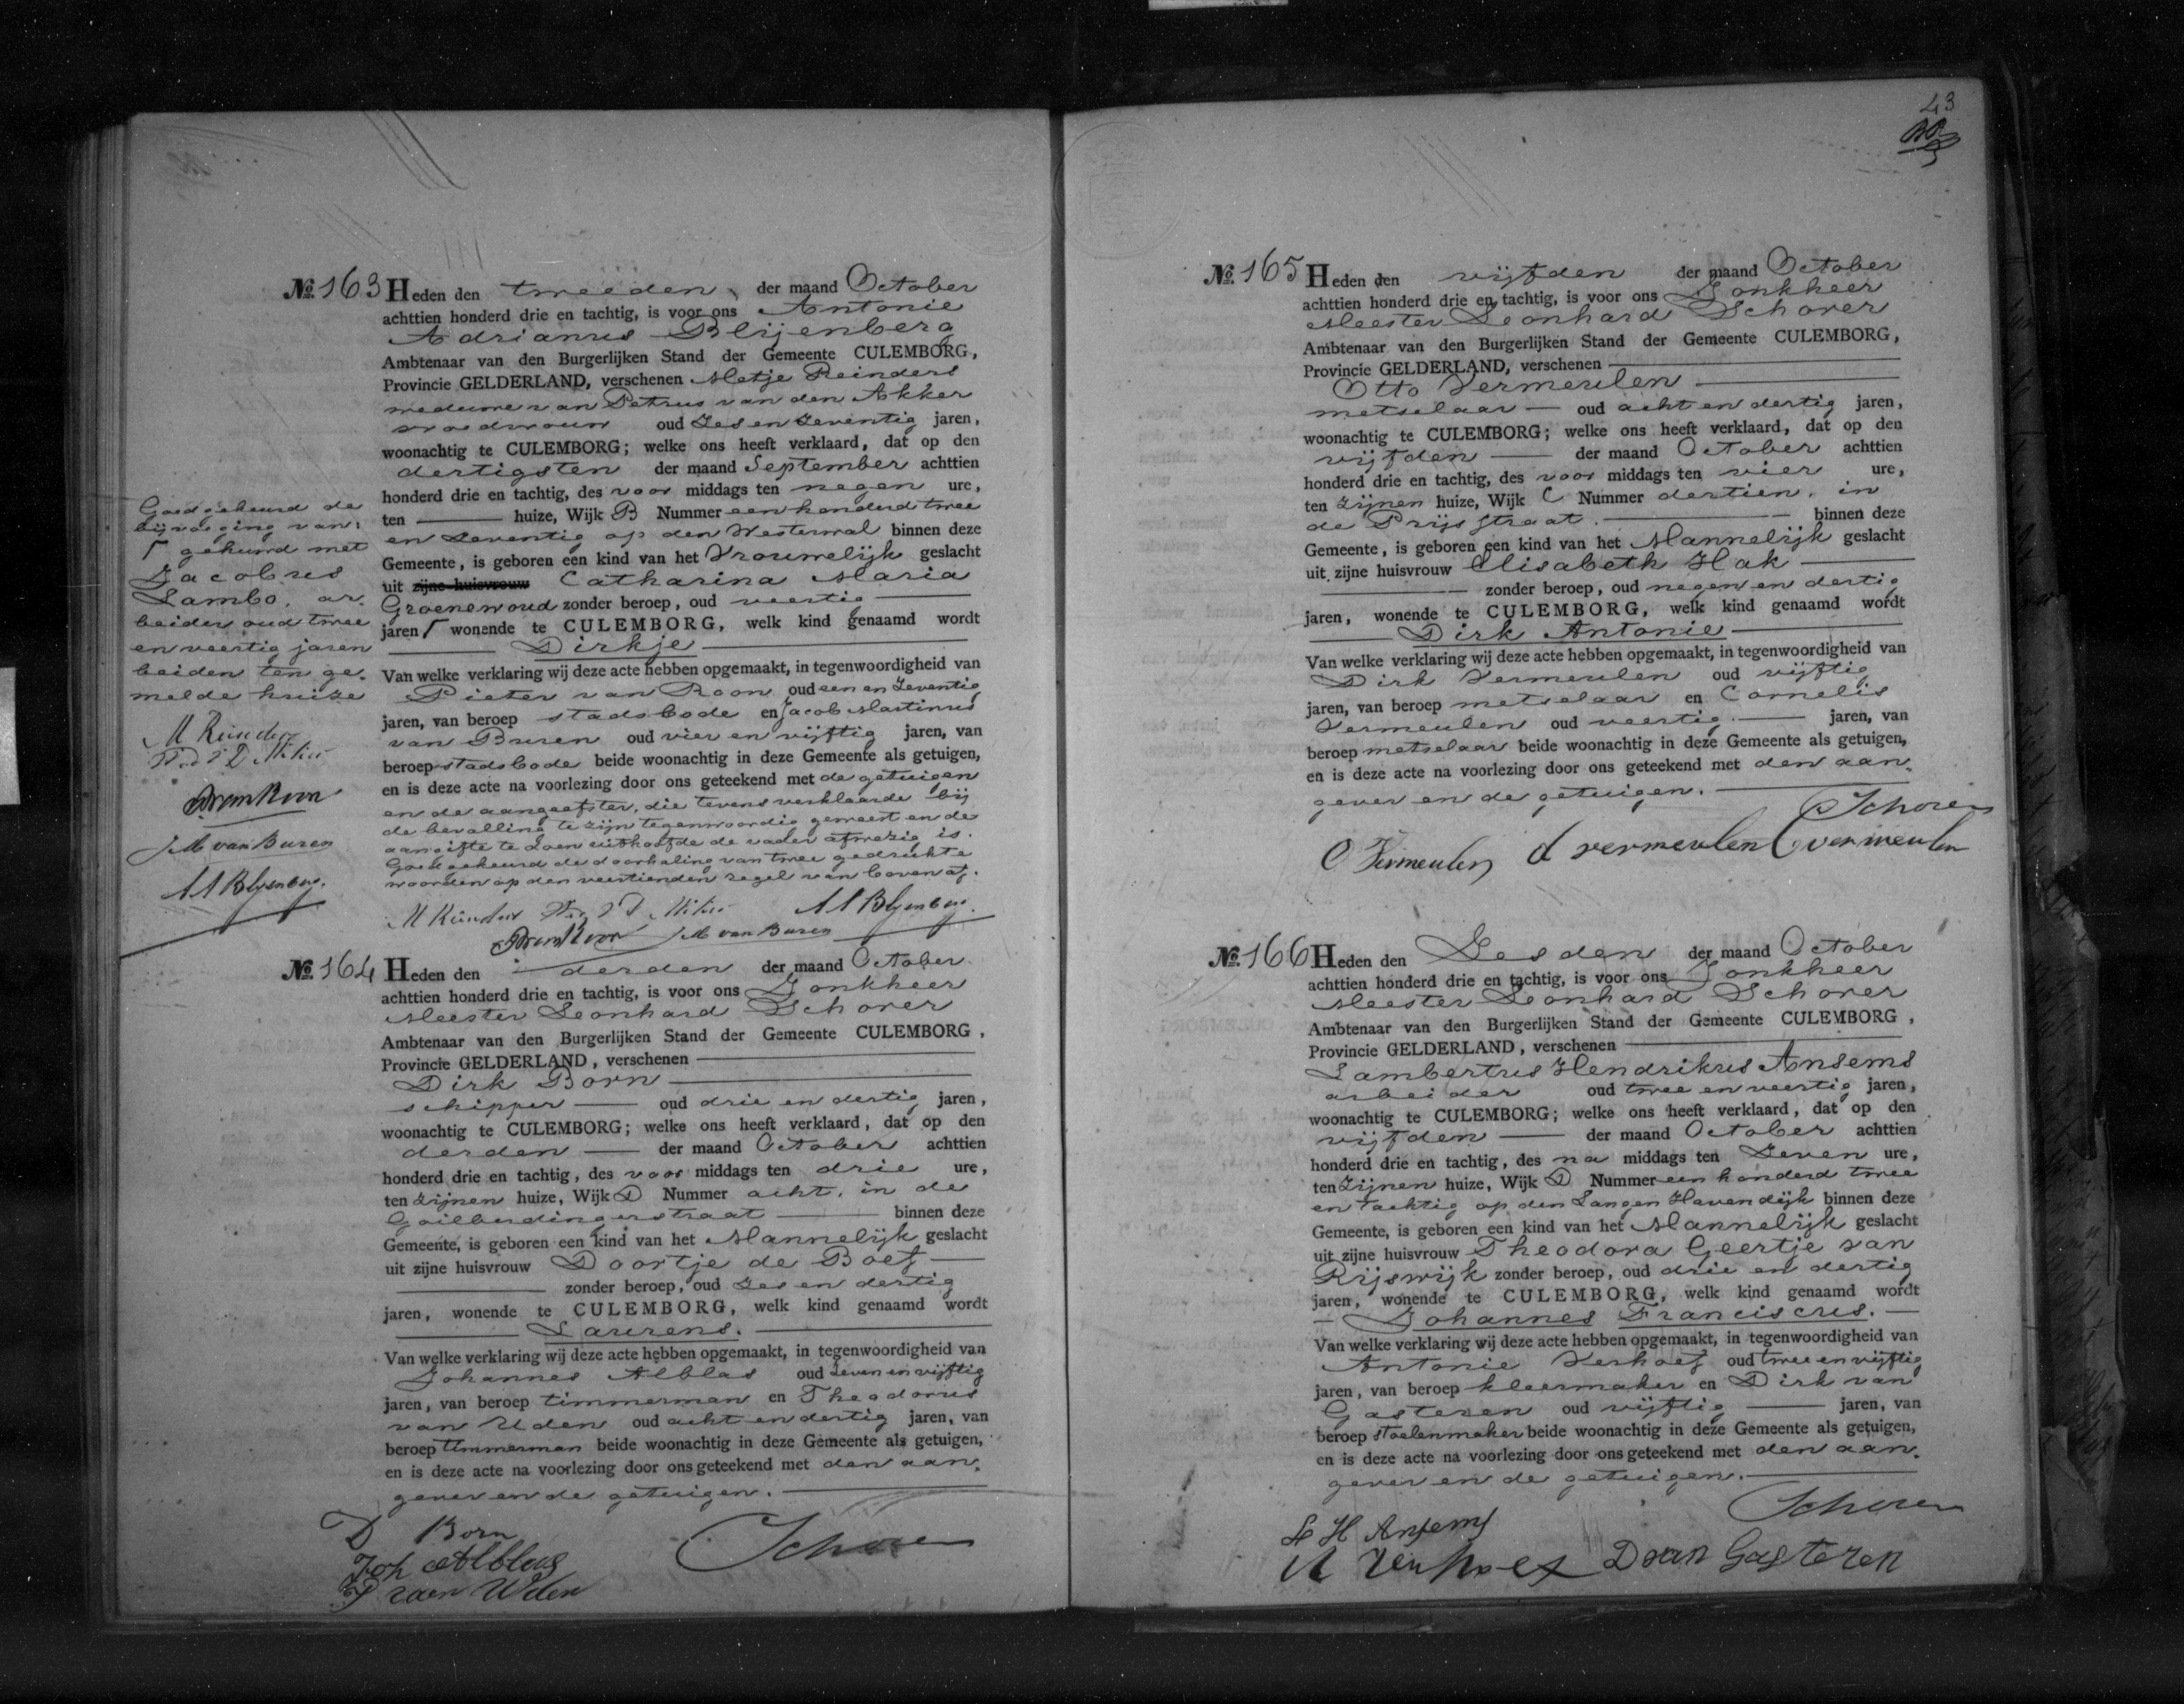 No. 163 Heden den tweeden der maand October
achttien honderd drie en tachtig, is voor ons Antonie
Adrianus Blijenberg
Ambtenaar van den Burgerlijken Stand der Gemeente CULEMBORG,
Provincie GELDERLAND, verschenen Metje Reinders
weduwe van Petrus van den Akker
vroedvrouw oud Zes en Zeventig jaren,
woonachtig te CULEMBORG; welke ons heeft verklaard, dat op den
dertigsten der maand September achttien
honderd drie en tachtig, des voor middags ten negen ure,
ten huize, Wijk B Nummer een honderd twee
en Zeventig op den Westerwal binnen deze
Gemeente, is geboren een kind van het Vrouwelijk geslacht
uit zijne huisvrouw Catharina Maria
Groenewoud zonder beroep, oud veertig
jaren Γ wonende te CULEMBORG, welk kind genaamd wordt
Dirkje
Van welke verklaring wij deze acte hebben opgemaakt, in tegenwoordigheid van
Pieter van Roon oud een en Zeventig
jaren, van beroep stadsbode en Jacob Martinus
van Buren oud vier en vijftig jaren, van
beroep stadsbode beide woonachtig in deze Gemeente als getuigen,
en is deze acte na voorlezing door ons geteekend met de getuigen
en de aangeefster, die tevens verklaarde bij
de bevalling te zijn tegenwoordig geweest en de
aangifte te doen uithoofde de vader afwezig is.
Goedgekeurd de doorhaling van twee gedrukte
woorden op den veertienden regel van boven af.
M Reinders A A Blyenberg.
P van Roon J M van Buren
Goedgekeurd de
bijvoeging van:
Γ gehuwd met
Jacobus
Lambo, ar-
beider oud twee
en veertig jaren
beiden ten ge-
melde huize
M Reinders
P van Roon
J M van Buren
A A Blyenberg.
No. 164 Heden den derden der maand October
achttien honderd drie en tachtig, is voor ons Jonkheer
Meester Leonhard Schorer
Ambtenaar van den Burgerlijken Stand der Gemeente CULEMBORG,
Provincie GELDERLAND, verschenen
Dirk Born
schipper oud drie en dertig jaren,
woonachtig te CULEMBORG; welke ons heeft verklaard, dat op den
derden der maand October achttien
honderd drie en tachtig, des voor middags ten drie ure,
ten Zijnen huize, Wijk D Nummer acht, in de
Goilberdingerstraat binnen deze
Gemeente, is geboren een kind van het Mannelijk geslacht
uit zijne huisvrouw Doortje de Boef
zonder beroep, oud Zes en dertig
jaren, wonende te CULEMBORG, welk kind genaamd wordt
Laurens.
Van welke verklaring wij deze acte hebben opgemaakt, in tegenwoordigheid van
Johannes Alblas oud Zeven en vijftig
jaren, van beroep timmerman en Theodorus
van Uden oud acht en dertig jaren, van
beroep timmerman beide woonachtig in deze Gemeente als getuigen,
en is deze acte na voorlezing door ons geteekend met den aan-
gever en de getuigen.
D Born
Schorer
Joh Alblas
T van Uden
43
No. 165 Heden den vijfden der maand October
achttien honderd drie en tachtig, is voor ons Jonkheer
Meester Leonhard Schorer
Ambtenaar van den Burgerlijken Stand der Gemeente CULEMBORG,
Provincie GELDERLAND, verschenen
Otto Vermeulen
metselaar oud acht en dertig jaren,
woonachtig te CULEMBORG; welke ons heeft verklaard, dat op den
vijfden der maand October achttien
honderd drie en tachtig, des voor middags ten vier ure,
ten Zijnen huize, Wijk C Nummer dertien, in
de Prijsstraat. binnen deze
Gemeente, is geboren een kind van het Mannelijk geslacht
uit zijne huisvrouw Elisabeth Hak
zonder beroep, oud negen en dertig
jaren, wonende te CULEMBORG, welk kind genaamd wordt
Dirk Antonie
Van welke verklaring wij deze acte hebben opgemaakt, in tegenwoordigheid van
Dirk Vermeulen oud vijftig
jaren, van beroep metselaar en Cornelis
Vermeulen oud veertig jaren, van
beroep metselaar beide woonachtig in deze Gemeente als getuigen,
en is deze acte na voorlezing door ons geteekend met den aan-
gever en de getuigen.
Schorer
O Vermeulen d vermeulen C vermeulen
No. 166 Heden den Zesden der maand October
achttien honderd drie en tachtig, is voor ons Jonkheer
Meester Leonhard Schorer
Ambtenaar van den Burgerlijken Stand der Gemeente CULEMBORG,
Provincie GELDERLAND, verschenen
Lambertus Hendrikus Ansems
arbeider oud twee en veertig jaren,
woonachtig te CULEMBORG; welke ons heeft verklaard, dat op den
vijfden der maand October achttien
honderd drie en tachtig, des na middags ten Zeven ure,
ten Zijnen huize, Wijk D Nummer een honderd twee
en tachtig op den Langen Havendijk binnen deze
Gemeente, is geboren een kind van het Mannelijk geslacht
uit zijne huisvrouw Theodora Geertje van
Rijswijk zonder beroep, oud drie en dertig
jaren, wonende te CULEMBORG, welk kind genaamd wordt
Johannes Franciscus.
Van welke verklaring wij deze acte hebben opgemaakt, in tegenwoordigheid van
Antonie Verhoef oud twee en vijftig
jaren, van beroep kleermaker en Dirk van
Gasteren oud vijftig jaren, van
beroep stoelenmaker beide woonachtig in deze Gemeente als getuigen,
en is deze acte na voorlezing door ons geteekend met den aan-
gever en de getuigen.
Schorer
L H Ansems
A Verhoef D van Gasteren